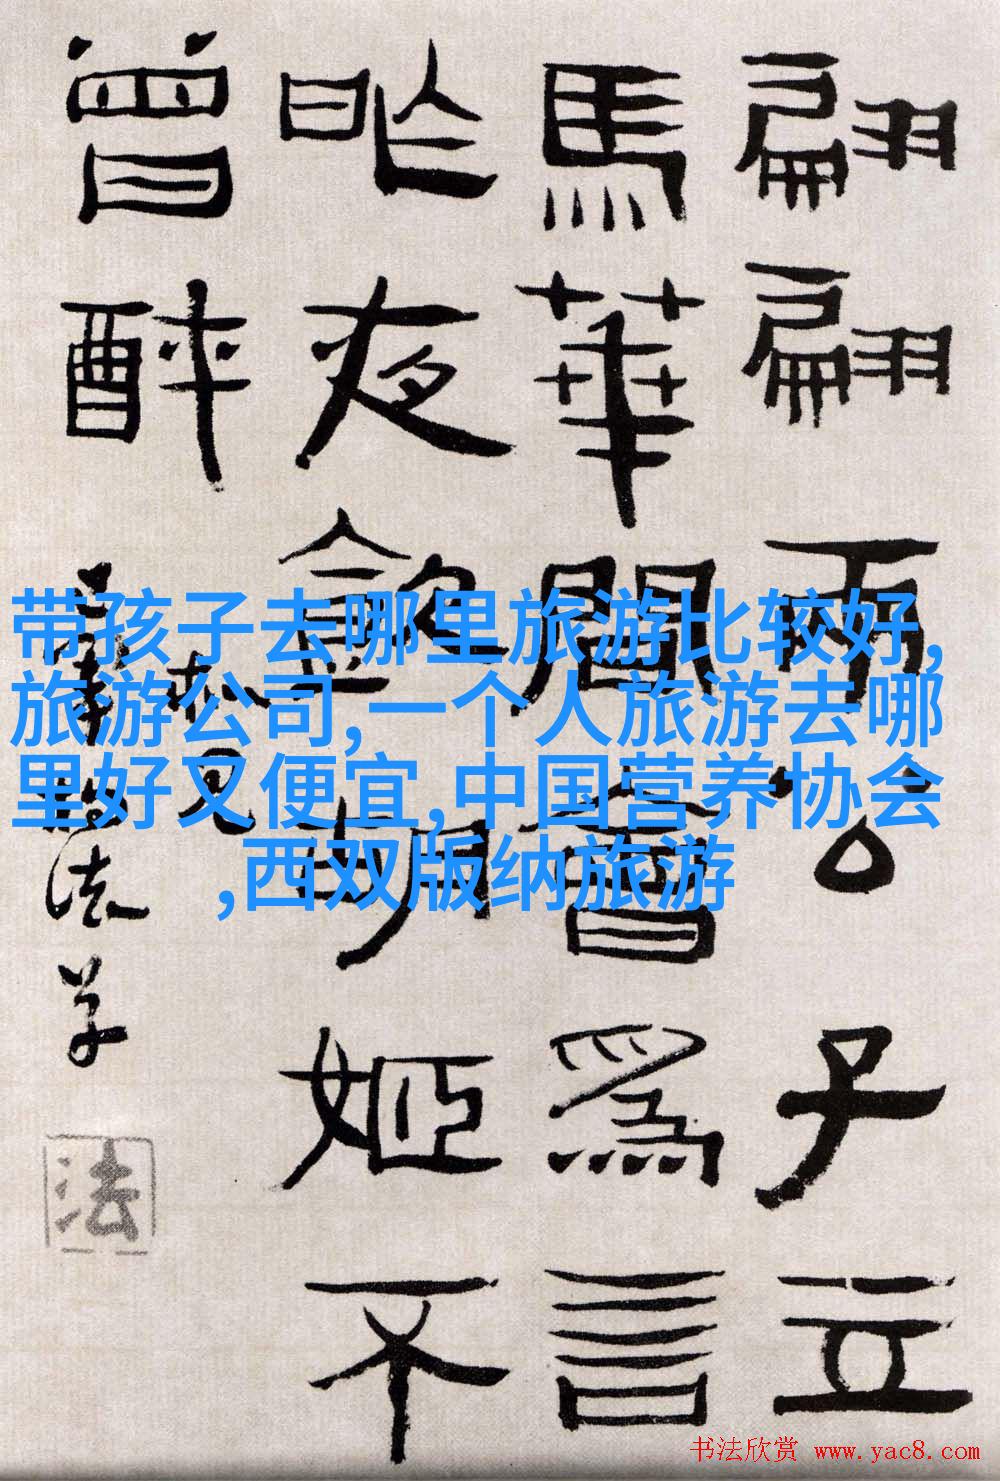 翩翩兩公子立
馬華間會爲言
昨夜飲胡姬不
曾醉
带孩子去哪里旅游比较好,
旅游公司,一个人旅游去哪
里好又便宜,中国营养协会
,西双版纳旅游
法
书法欣赏 www.yac8.com